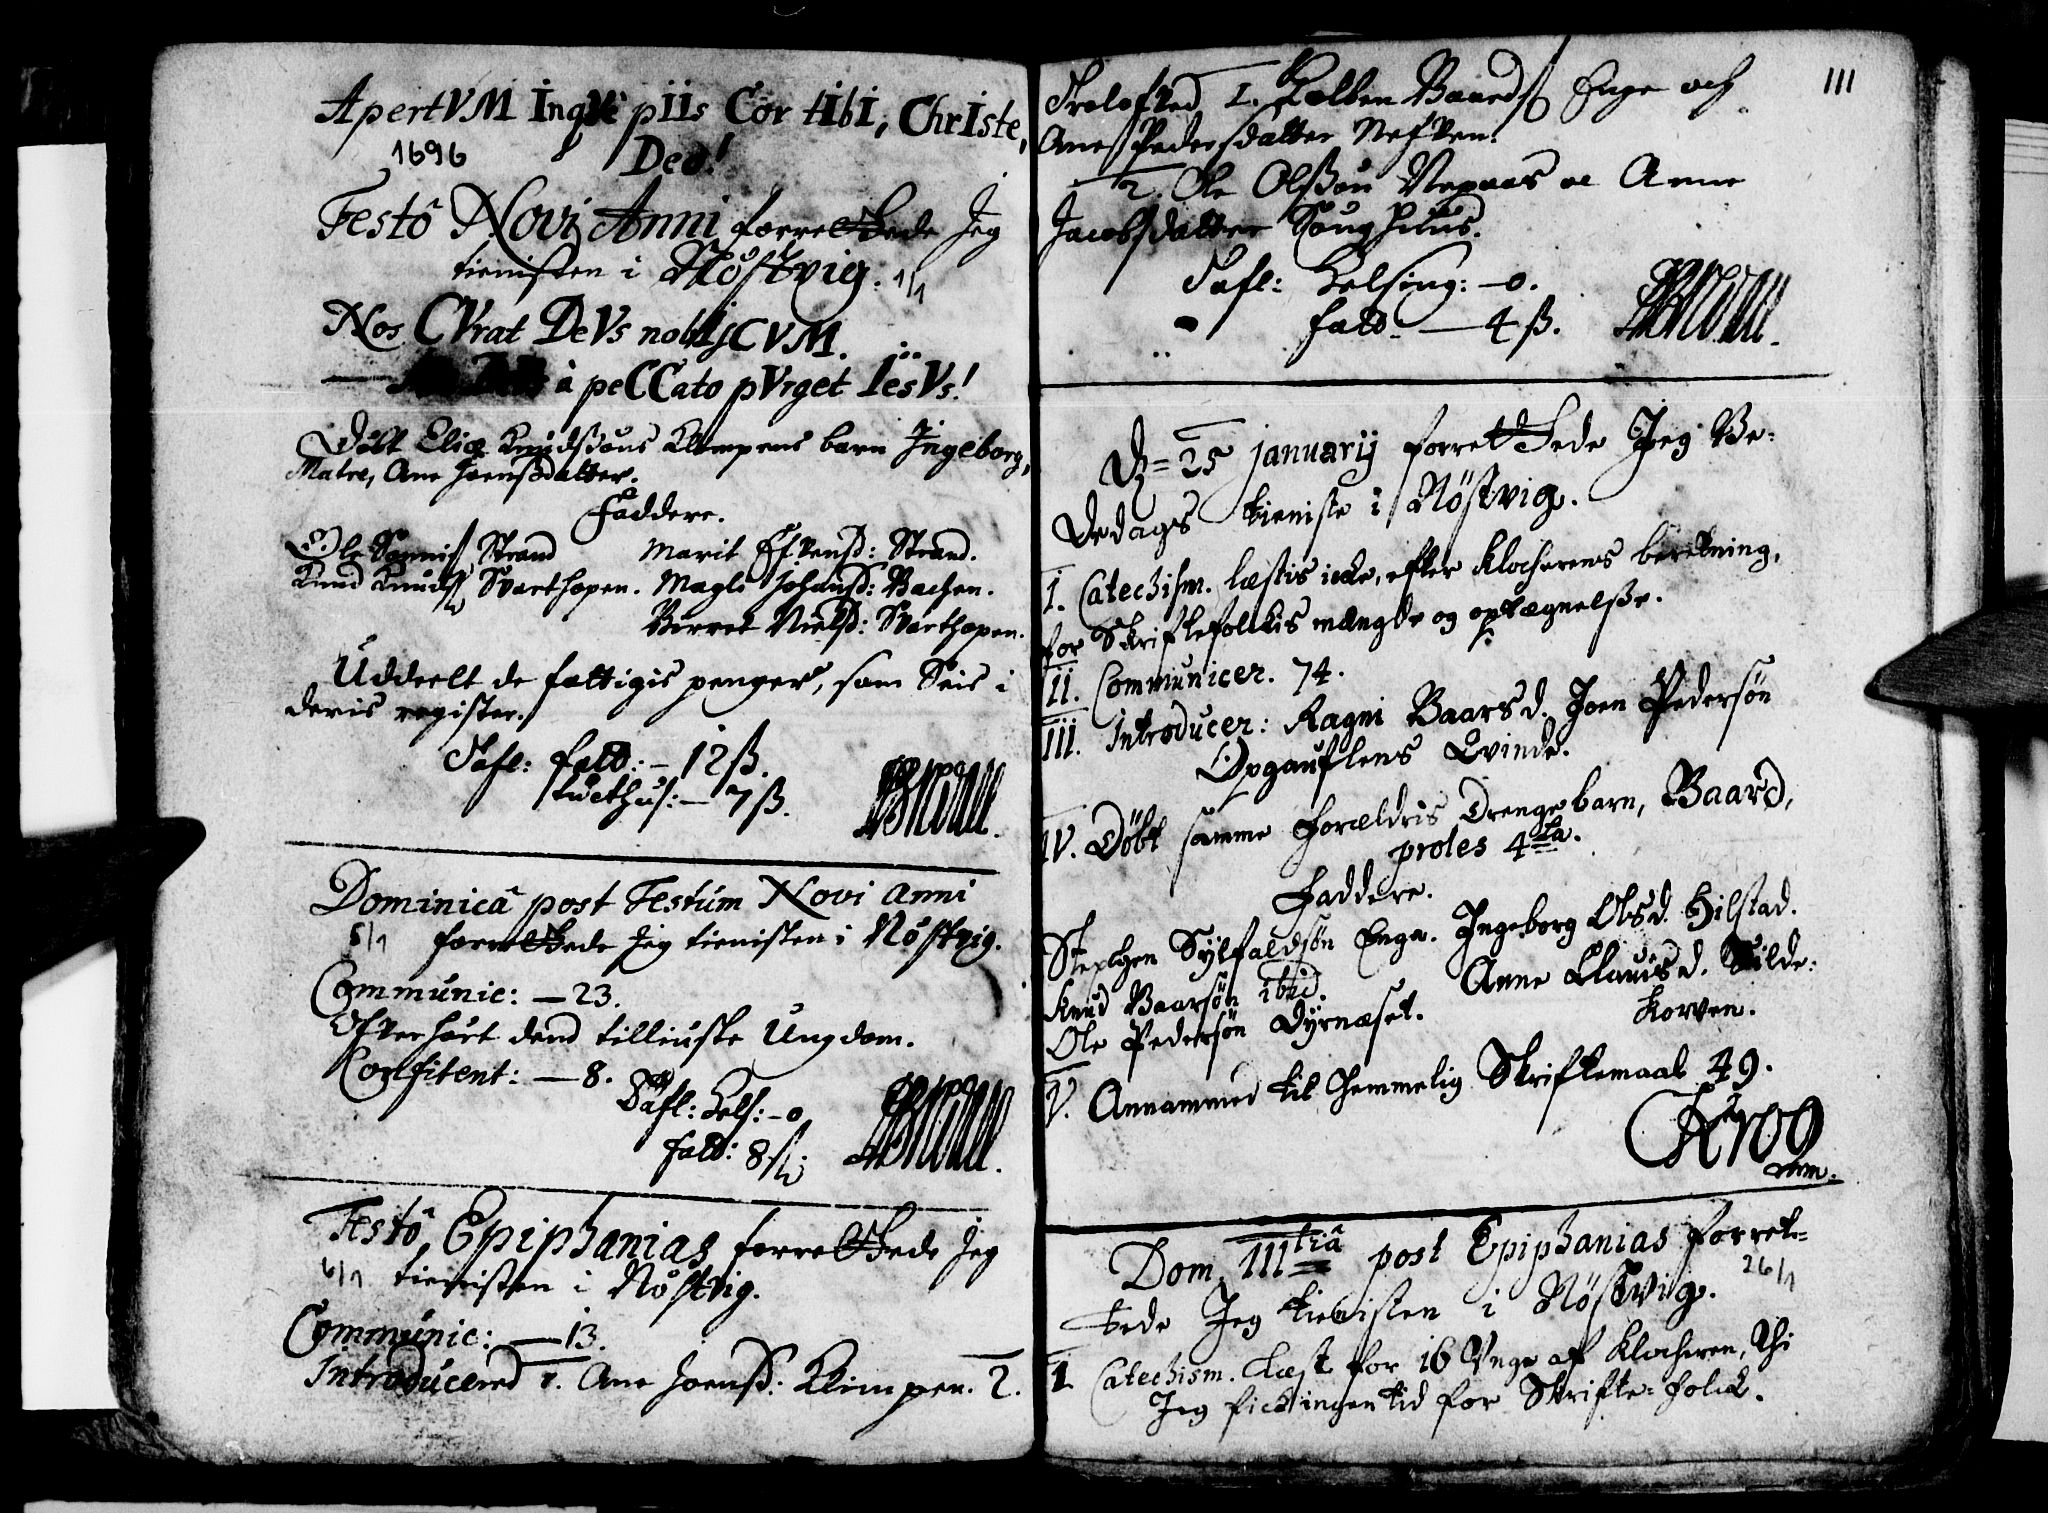 ApertVM InqVe pIIs Cor tIbI, ChrIste,
1696 Deo!
Festô Novi Anni forrettede Jeg
tienisten i Nöstvig. 1/1
Nos CVrat DeVs nobIsCVM.
à peCCato pVrget IesVs!
Döbt Eliæ Knudssøns Klompens barn Ingeborg,
Matre, Ane Joenssdatter.
Faddere.
Ole Strand Marit Strand.
Knud Knuds. Svarthopen. Magli Johansd: Bachen.
Berret Nielsd: Svarthopen.
Uddeelt de fattigis penger, som Seis i
deris register.
Tafl: fald: – 12 ß.
tucthus: – 7 ß.
Dominicâ post Festum Novi Anni
5/1 forrettede Jeg tienisten i Nöstvig.
Communic: – 23.
Ofverhört dend tilliuste Ungdom.
Confitent: – 8.
Tafl: Hels: – 0
fald: 8 ß
Festô Epiphanias forrettede Jeg
6/1 tienisten i Nöstvig.
Communic: – 13.
Introducered 1. Ane Joensd: Klimpen. 2.
111
Trolofved 1. Baards. Enge och
Ane Pedersdatter
2. Ole Olssøn Nepaas oc Anne
Jacobsdatter
Tafl: Helsing: – 0.
fald – 4 ß.
D. 25 januarij forrettede Jeg Be-
dedags tieniste i Nöstvig.
I. Catechism. læstis icke, efter Klockerens beretning,
for Skriftefolckis mængde og optægnelsse.
II. Communicer. 74.
III. Introducer: Ragni Baarsd. Joen Pedersøn
Opgauflens Qvinde.
IV. Döbt samme Forældris Drengebarn, Baard,
proles 4ta.
Faddere.
Stephen Sylfaldsøn Enge. Ingeborg Olsd. Hilstad.
Knud Baarsøn ibid. Anne Clausd. Skilde-
Ole Pedersøn Dyrnæset. Korven.
V. Annammed til Hemmelig Skriftemaal 49.
Krog
mm.
Dom. IIItiâ post Epiphanias forret-
tede Jeg tienisten i Nöstvig. 26/1
I. Catechism. læst for 16 Unge af Klockeren, thi
Jeg fick ingen tid for Skrifte-folck.